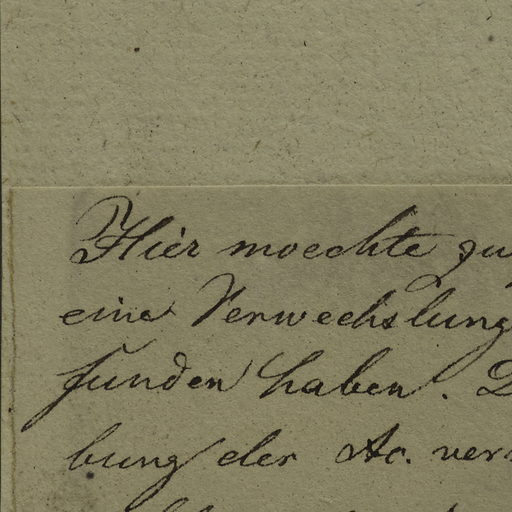 Hier moechte zu
eine Verwechslung
funden haben. D
bung der Ac. ver